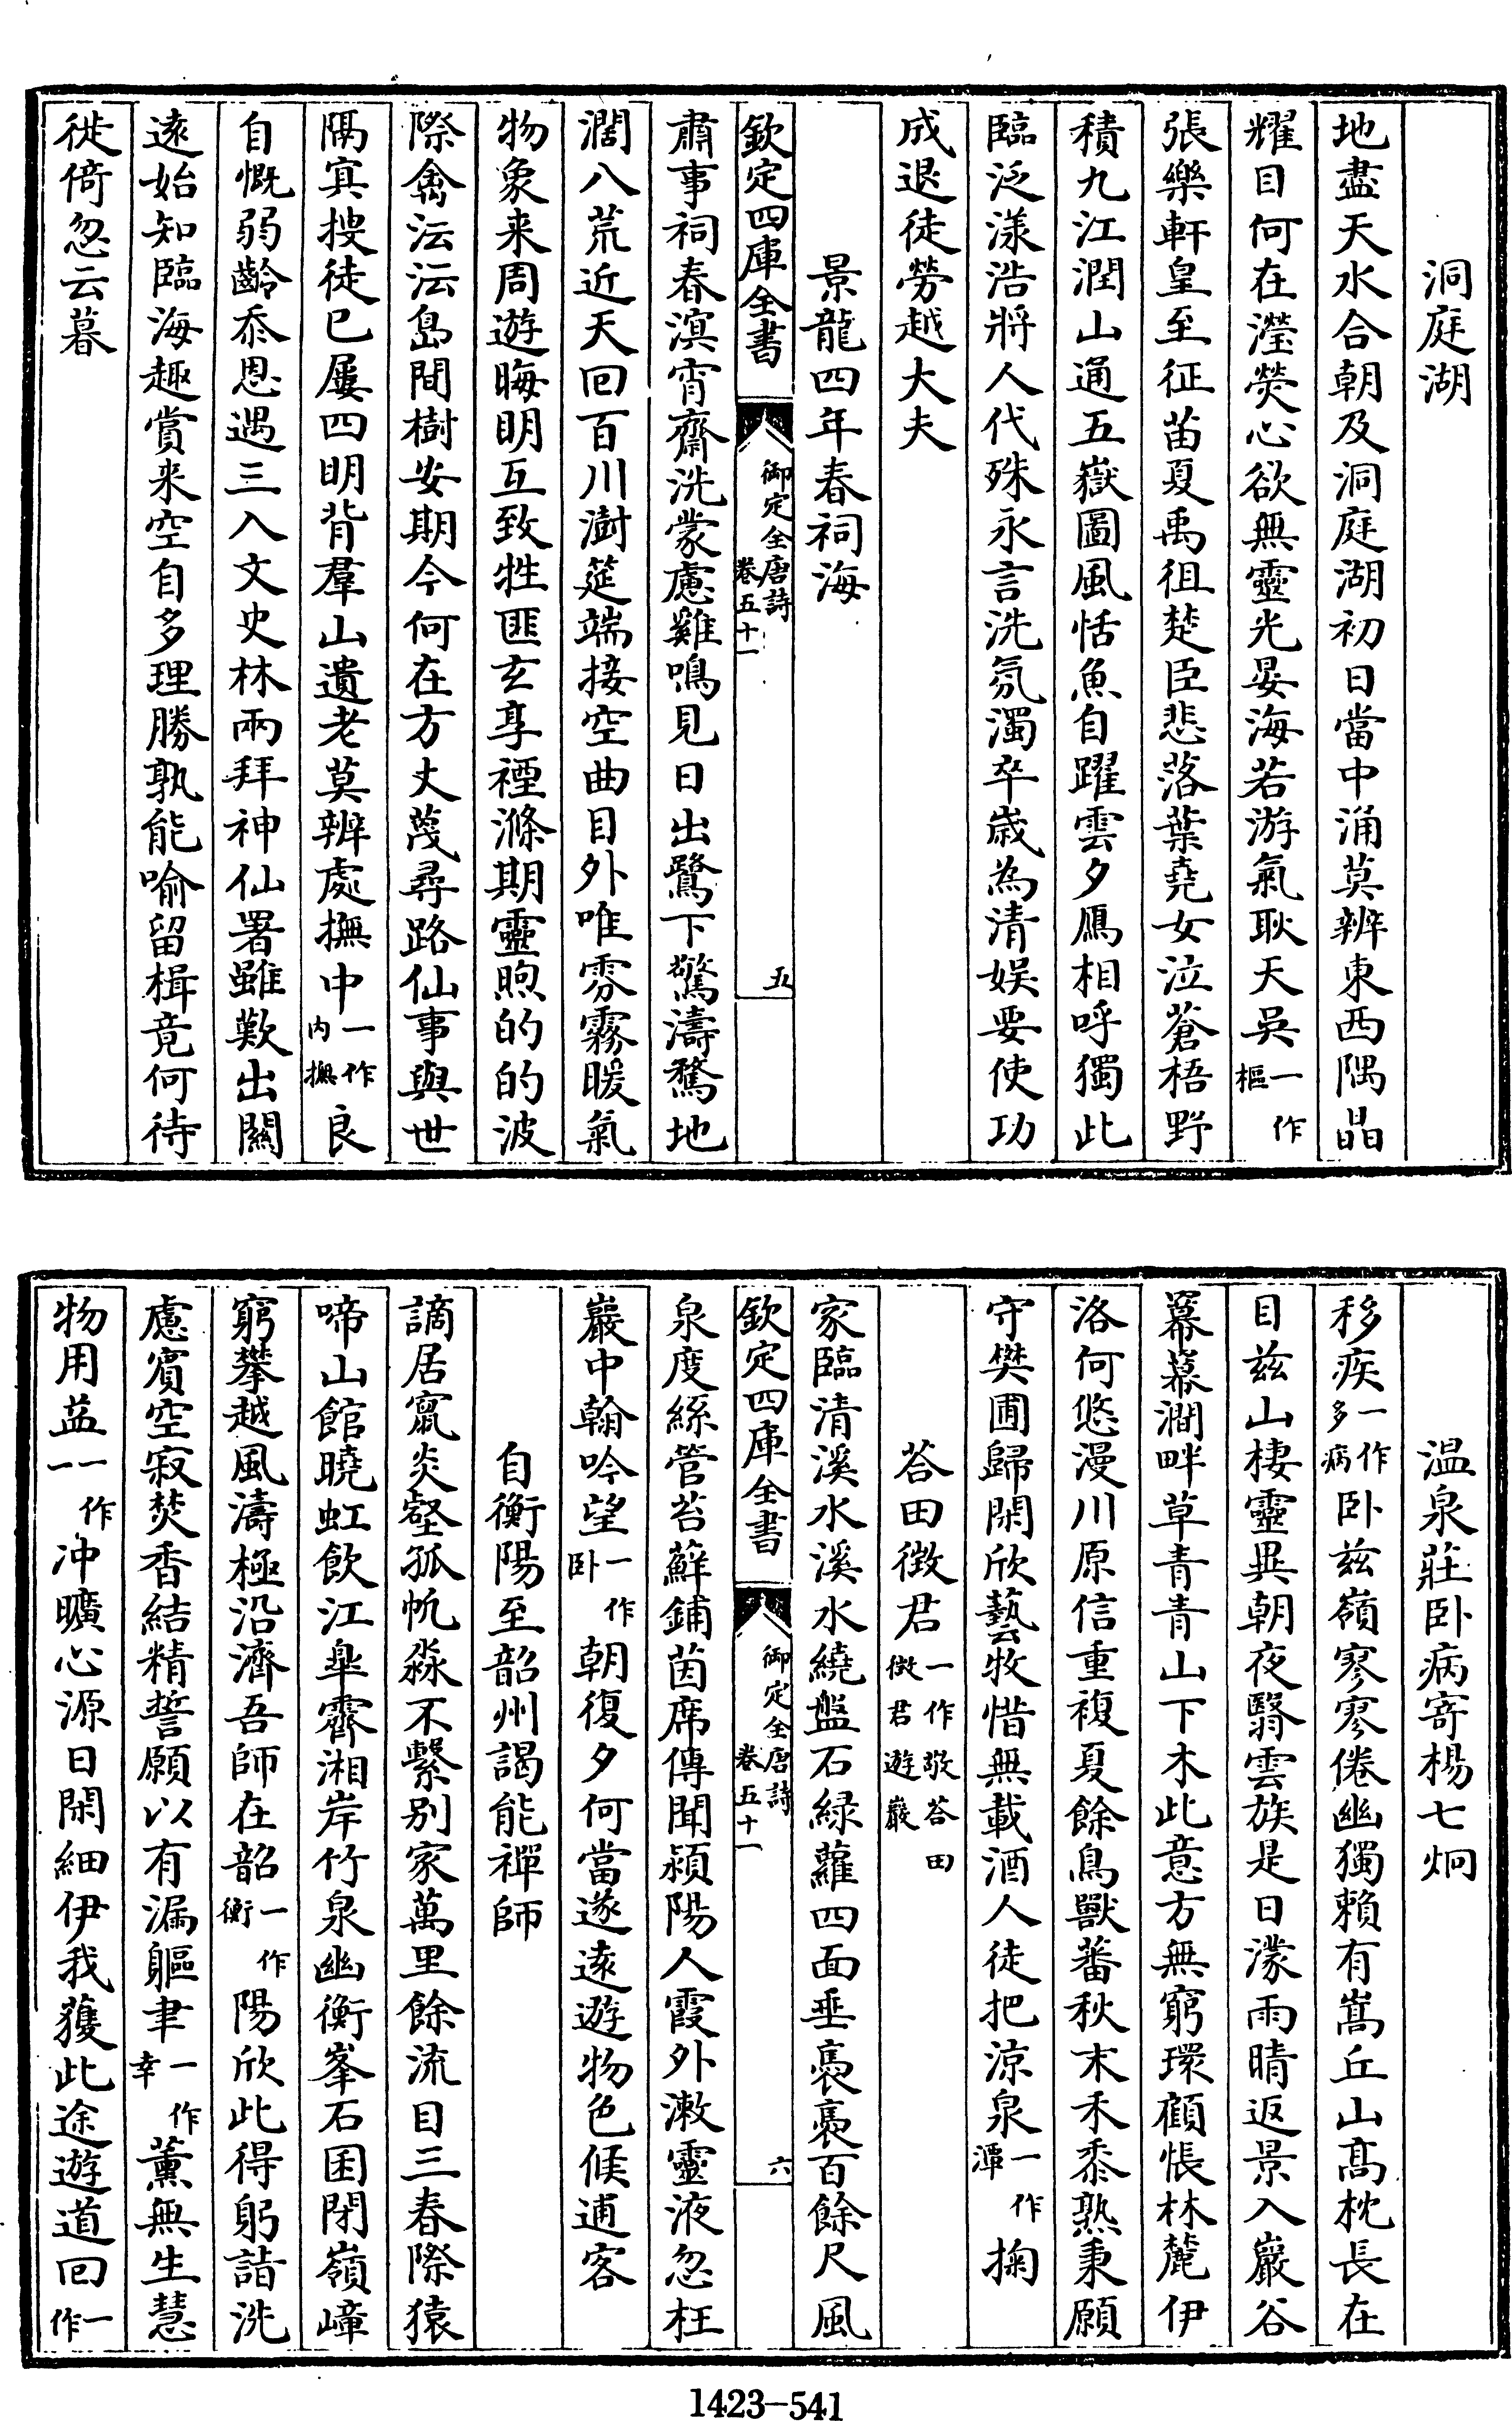 洞庭湖
地盡天水合朝及洞庭湖初日當中涌莫辨東西隅晶
耀目何在瀅熒心欲無靈光晏海若游氣耿天吳一作樞
張樂軒皇至征苗夏禹徂楚臣悲落葉堯女泣蒼梧野
積九江潤山通五嶽圖風恬魚自躍雲夕鴈相呼獨此
臨泛漾浩將人代殊永言洗氛濁卒歲為清娯要使功
成退徒勞越大夫
景龍四年春祠海
肅事祠春溟宵齋洗蒙慮雞鳴見日出鷺下驚濤騖地
濶八荒近天回百川澍筵端接空曲目外唯雰霧暖氣
物象来周遊晦明互致牲匪玄享禋滌期靈煦的的波
際禽沄沄島間樹安期今何在方丈蔑尋路仙事與世
隔冥搜徒已屢四明背羣山遺老莫辨處撫中一作内撫良
自慨弱齡忝恩遇三入文史林兩拜神仙署雖歎出關
遠始知臨海趣賞来空自多理勝孰能喻留楫竟何待
徙倚忽云暮
欽定四庫全書
御定全唐詩
卷五十一
五
温泉莊卧病寄楊七炯
移疾一作多病卧兹嶺寥寥倦幽獨賴有嵩丘山高枕長在
目兹山棲靈異朝夜翳雲族是日濛雨晴返景入巖谷
羃羃澗畔草青青山下木此意方無窮環顧悵林麓伊
洛何悠漫川原信重複夏餘鳥獸蕃秋末禾黍熟秉願
守樊圃歸閑欣藝牧惜無載酒人徒把涼泉一作潭掬
荅田徴君一作敬荅田徴君遊巖
家臨清溪水溪水繞盤石緑蘿四面垂裊裊百餘尺風
泉度絲管苔蘚鋪茵席傳聞潁陽人霞外漱靈液忽枉
巖中翰吟望一作卧朝復夕何當遂遠遊物色候逋客
自衡陽至韶州謁能禪師
謫居竄炎壑孤帆淼不繫别家萬里餘流目三春際猿
啼山館曉虹飲江臯霽湘岸竹泉幽衡峯石囷閉嶺嶂
窮攀越風濤極沿濟吾師在韶一作衡陽欣此得躬詣洗
慮賓空寂焚香結精誓願以有漏軀聿一作幸薰無生慧
物用益一作一冲曠心源日閑細伊我獲此途遊道回一作
欽定四庫全書
御定全唐詩
卷五十一
六
1423-541